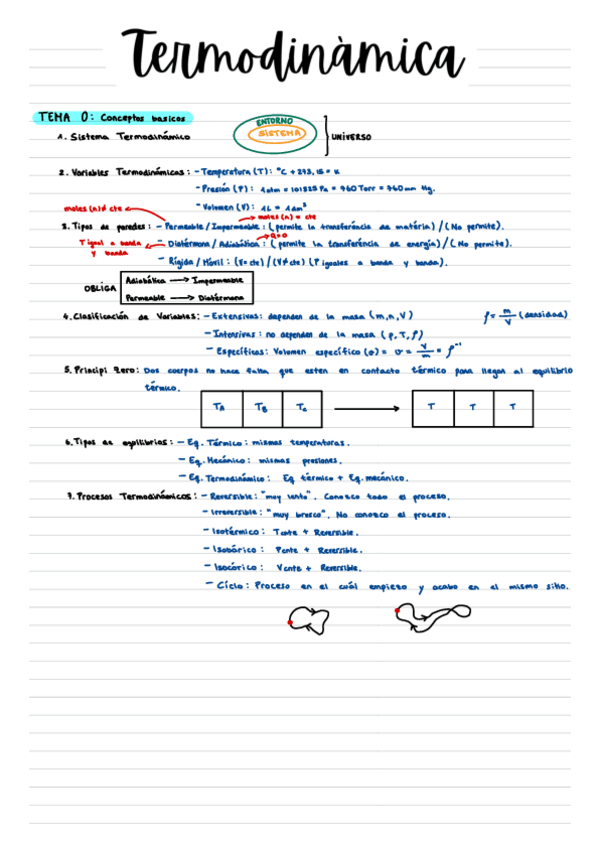 Termodinàmica
TEMA 0: Conceptos basicos
1. Sistema Termodinámico
ENTORNO
SISTEMA
UNIVERSO
2. Variables Termodinámicas: - Temperatura (T): °C + 273,15 = K
- Presión (P): 1 atm = 101325 Pa = 760 Torr = 760 mm Hg.
- Volumen (V): 1L = 1dm³
moles (n) ≠ cte
moles (n) = cte
3. Tipos de paredes: - Permeable / Impermeable: (permite la transferéncia de matéria) / (No permite).
T igual a banda y banda
Q=0
- Diatérmana / Adiabática: (permite la transferéncia de energía) / (No permite).
- Rígida / Móvil: (V=cte) / (V≠cte) (P iguales a banda y banda).
OBLIGA
Adiabática → Impermeable
Permeable → Diatérmana
4. Clasificación de Variables: - Extensivas: dependen de la masa (m, n, V)
ρ = m/V (densidad)
- Intensivas: no dependen de la masa (P, T, ρ)
- Específicas: Volumen específico (v) = v = V/m = ρ⁻¹
5. Principi Zero: Dos cuerpos no hace falta que esten en contacto térmico para llegar al equilibrio
térmico.
TA TB TC → T T T
6. Tipos de equilibrios: - Eq. Térmico: mismas temperaturas.
- Eq. Mecánico: mismas presiones.
- Eq. Termodinámico: Eq térmico + Eq. mecánico.
7. Procesos Termodinámicos: - Reversible: "muy lento". Conozco todo el proceso.
- Irreversible: "muy brusco". No conozco el proceso.
- Isotérmico: Tcnte + Reversible.
- Isobárico: Pcnte + Reversible.
- Isocórico: Vcnte + Reversible.
- Ciclo: Proceso en el cuál empiezo y acabo en el mismo sitio.